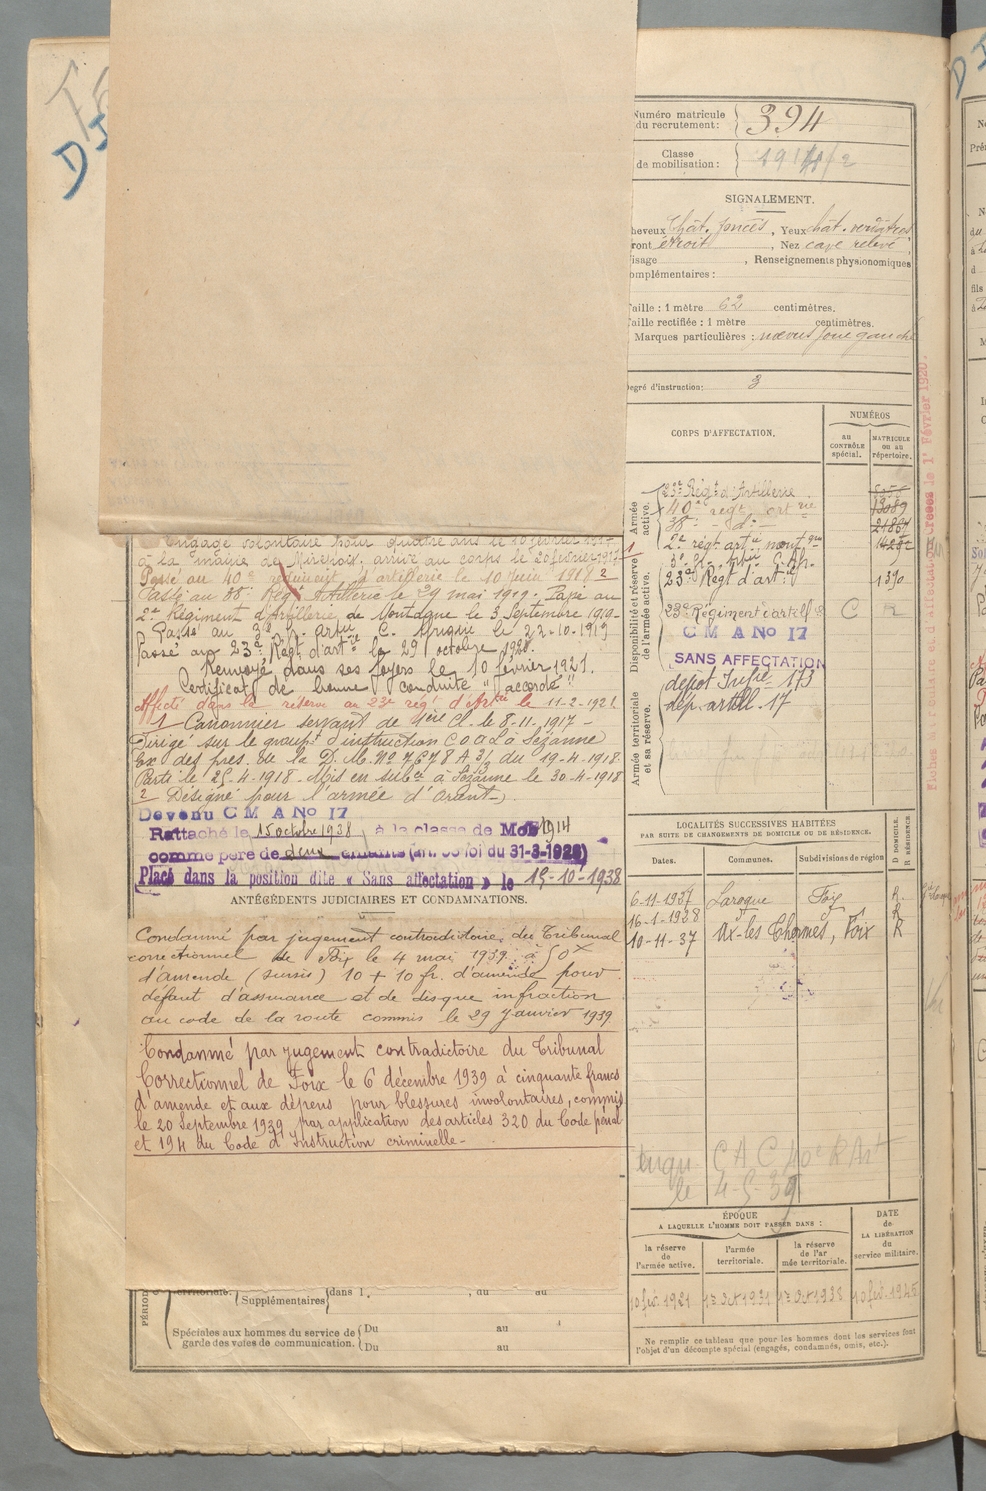 Engagé volontaire pour quatre ans le 10 février 1917
à la mairie de Mirepoix, arrivé au corps le 20 février 1917
Passé au 40e régiment d'artillerie le 10 juin 1918 2
Passé au 38e Régt Artillerie le 29 mai 1919. Passé au
2e Régiment d'Artillerie de Montagne le 3 Septembre 1919.
Passé au 3e G. artie C. Afrique le 22-10-1919
Passé au 23e Régt d'artie le 29 octobre 1920.
Renvoyé dans ses foyers le 10 février 1921.
Certificat de bonne conduite "accordé"
Affecté dans la réserve au 23e rég. d'Artie le 11-2-1921
1 Canonnier servant de 1ère Cl. le 8-11-1917 -
Dirigé sur le groupt d'instruction à Sézanne
Ex des pres. de la D. M. No 7678 A 3/3 du 19-4-1918
Parti le 25-4-1918 - Mis en subce à Sézanne le 30-4-1918
2 Désigné pour l'armée d'Orient
Devenu C M A No 17
Rattaché le 15 octobre 1938, à la classe de Mob 1914
comme père de deux enfants (art. 58 loi du 31-3-1928)
Placé dans la position dite « Sans affectation » le 15-10-1938
ANTÉCÉDENTS JUDICIAIRES ET CONDAMNATIONS.
Condamné par jugement contradictoire du Tribunal
correctionnel de Foix le 4 mai 1939 à 50 x
d'amende (sursis) 10 + 10 fr. d'amende pour
défaut d'assurance et de disque infraction
au code de la route commis le 29 janvier 1939
Condamné par jugement contradictoire du Tribunal
Correctionnel de Foix le 6 décembre 1939 à cinquante francs
d'amende et aux dépens pour blessures involontaires, commis
le 20 Septembre 1939 par application des articles 320 du Code pénal
et 194 du Code d'Instruction criminelle -
territoriale. Supplémentaires dans l. , au au
Spéciales aux hommes du service de
garde des voies de communication.
Du au
Du au
Numéro matricule
du recrutement : 394
Classe
de mobilisation :
SIGNALEMENT.
heveux Chât. foncés, Yeux chât. verdâtres
ront étroit, Nez cave relevé
isage , Renseignements physionomiques
omplémentaires :
aille : 1 mètre 62 centimètres.
aille rectifiée : 1 mètre centimètres.
Marques particulières : nœvus joue gauche
egré d'instruction : 3
CORPS D'AFFECTATION.
NUMÉROS
au
CONTRÔLE
spécial.
MATRICULE
ou au
répertoire.
Armée
active.
Disponibilité et réserve
de l'armée active.
Armée territoriale
et sa réserve.
23e Régt d'Artillerie
40e régt artrie
38e - d° -
2e régt artie montgne
3e G. artie C. Af.
23e Régt d'artie 1390
23e Régiment d'artillie C R
C M A No 17
SANS AFFECTATION
dépôt Infie 173
dép. artill. 17
Fiches Matricule et d'affectation créées le 1r Février 1920.
LOCALITÉS SUCCESSIVES HABITÉES
PAR SUITE DE CHANGEMENTS DE DOMICILE OU DE RÉSIDENCE.
Dates. Communes. Subdivisions de région
D DOMICILE.
R RÉSIDENCE
6-11-1937 Laroque Foix R.
16-1-1928 d° d° R
10-11-37 Ax-les Thermes, Foix R
CAC 40e R Art
le 4-5-39
ÉPOQUE
A LAQUELLE L'HOMME DOIT PASSER DANS :
DATE
de
LA LIBÉRATION
du
service militaire.
la réserve
de
l'armée active.
l'armée
territoriale.
la réserve
de l'ar
mée territoriale.
10 fév. 1921 1er Oct 1931 1er Oct 1938 10 fév. 1945
Ne remplir ce tableau que pour les hommes dont les services font
l'objet d'un décompte spécial (engagés, condamnés, omis, etc.).